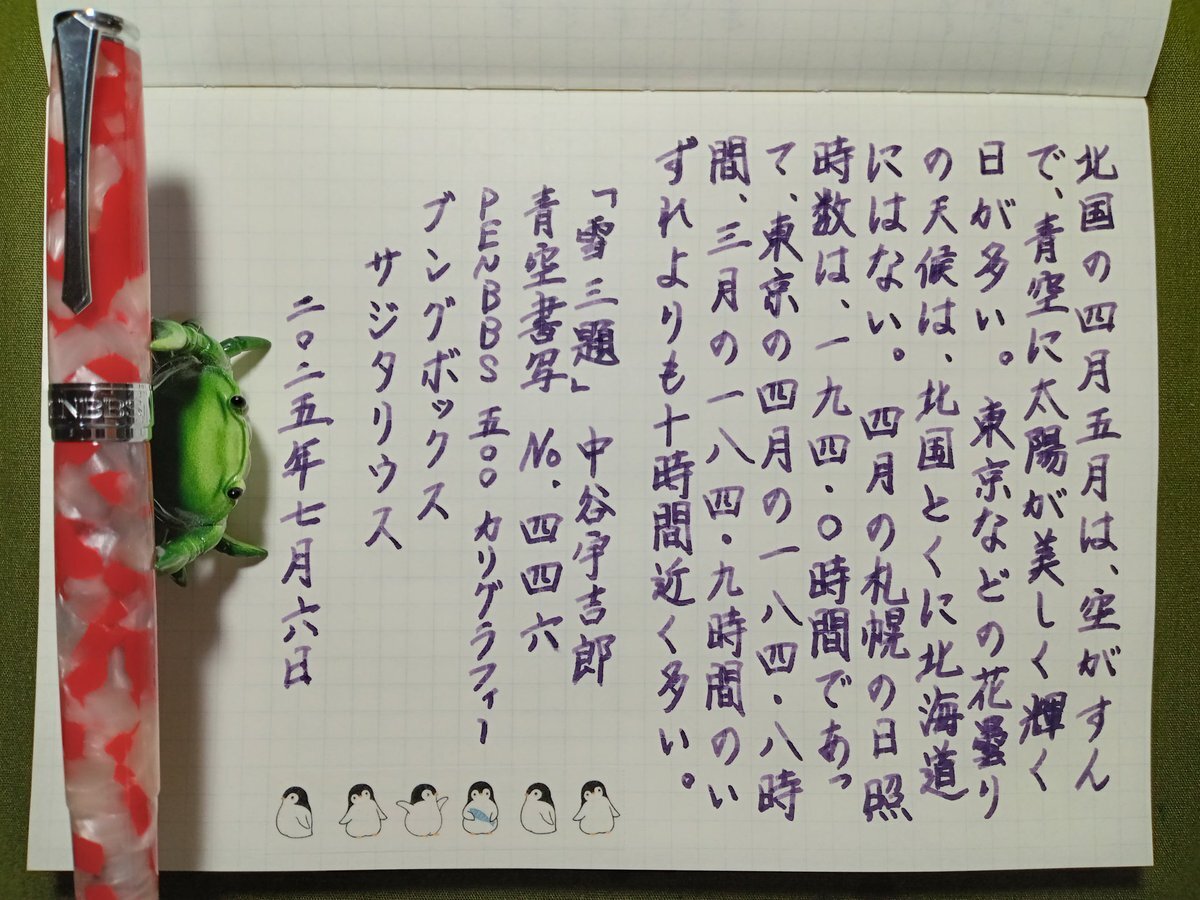 北国の四月五月は、空がすん
で、青空に太陽が美しく輝く
日が多い。東京などの花曇り
の天候は、北国とくに北海道
にはない。四月の札幌の日照
時数は、一九四・〇時間であっ
て、東京の四月の一八四・八時
間、三月の一八四・九時間のい
ずれよりも十時間近く多い。
「雪三題」 中谷宇吉郎
青空書写 No.四四六
PENBBS 五〇〇 カリグラフィー
ブングボックス
サジタリウス
二〇二五年七月六日
ENBBS